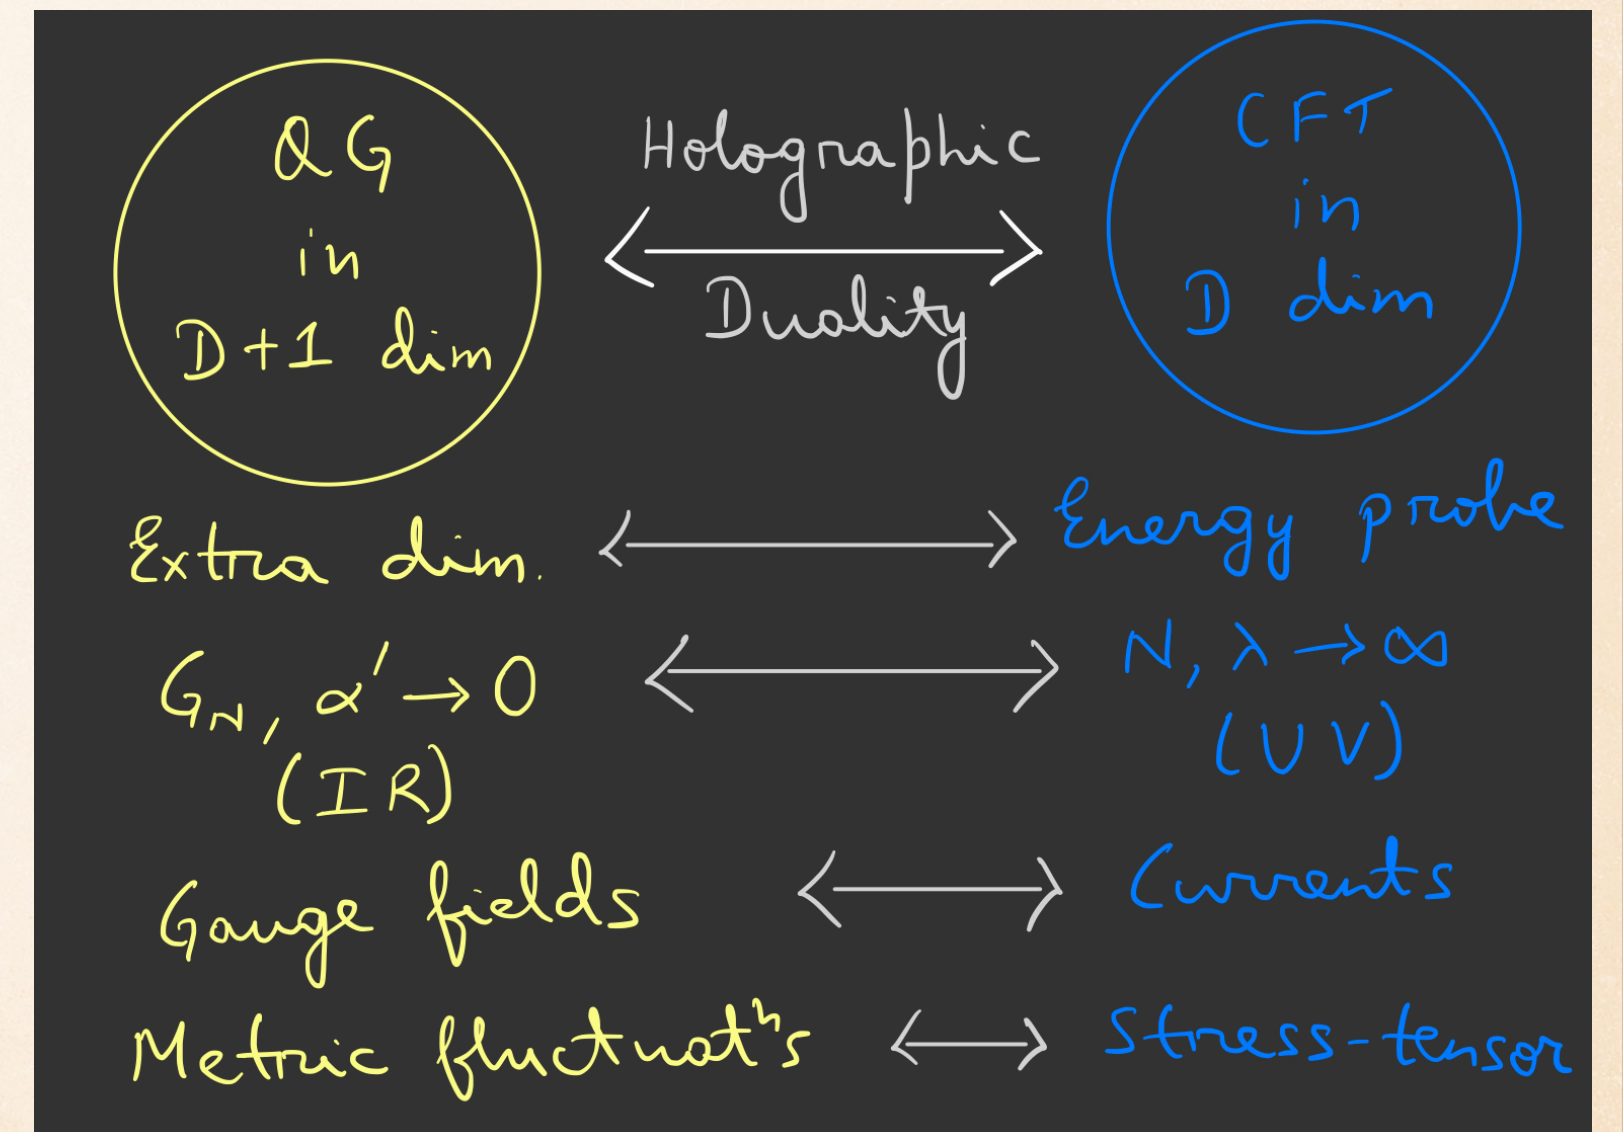 QG
in
D+1 dim
Holographic
Duality
CFT
in
D dim
Extra dim. ⟷ Energy probe
G_N, α' → 0 ⟷ N, λ → ∞
(IR) (UV)
Gauge fields ⟷ Currents
Metric fluctuatⁿs ⟷ Stress-tensor